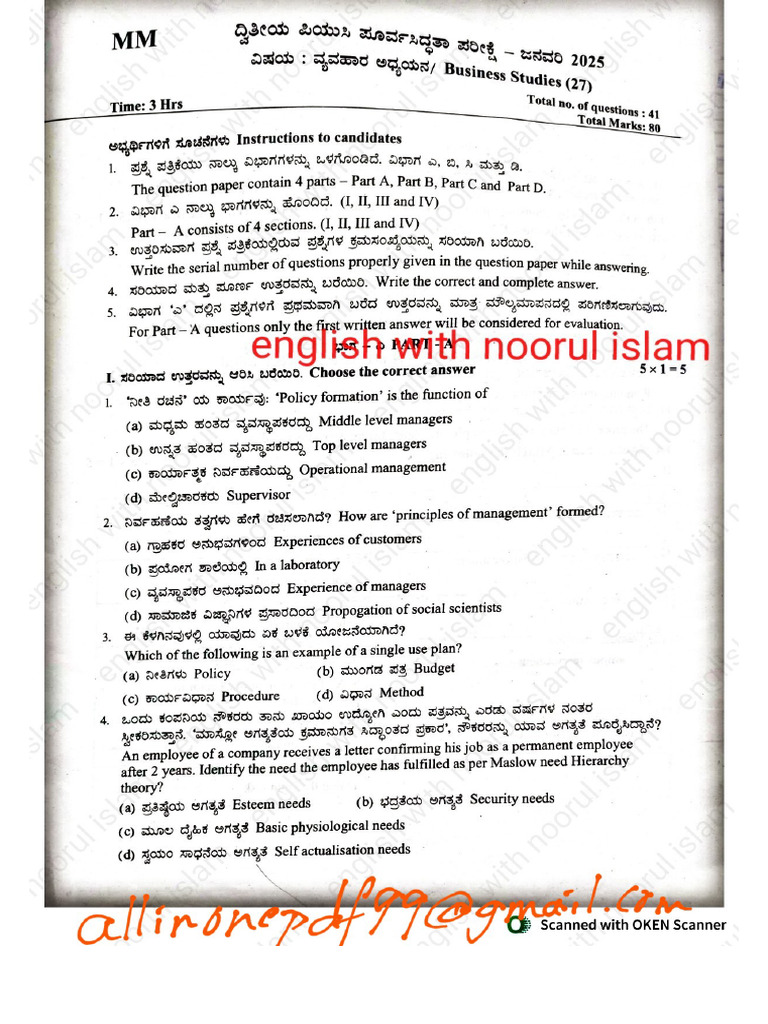 MM
ದ್ವಿತೀಯ ಪಿಯುಸಿ ಪೂರ್ವಸಿದ್ಧತಾ ಪರೀಕ್ಷೆ – ಜನವರಿ 2025
ವಿಷಯ : ವ್ಯವಹಾರ ಅಧ್ಯಯನ/ Business Studies (27)
Time: 3 Hrs
Total no. of questions : 41
Total Marks: 80
ಅಭ್ಯರ್ಥಿಗಳಿಗೆ ಸೂಚನೆಗಳು Instructions to candidates
1. ಪ್ರಶ್ನೆ ಪತ್ರಿಕೆಯು ನಾಲ್ಕು ವಿಭಾಗಗಳನ್ನು ಒಳಗೊಂಡಿದೆ. ವಿಭಾಗ ಎ, ಬಿ, ಸಿ ಮತ್ತು ಡಿ.
The question paper contain 4 parts – Part A, Part B, Part C and Part D.
2. ವಿಭಾಗ ಎ ನಾಲ್ಕು ಭಾಗಗಳನ್ನು ಹೊಂದಿದೆ. (I, II, III and IV)
Part – A consists of 4 sections. (I, II, III and IV)
3. ಉತ್ತರಿಸುವಾಗ ಪ್ರಶ್ನೆ ಪತ್ರಿಕೆಯಲ್ಲಿರುವ ಪ್ರಶ್ನೆಗಳ ಕ್ರಮಸಂಖ್ಯೆಯನ್ನು ಸರಿಯಾಗಿ ಬರೆಯಿರಿ.
Write the serial number of questions properly given in the question paper while answering.
4. ಸರಿಯಾದ ಮತ್ತು ಪೂರ್ಣ ಉತ್ತರವನ್ನು ಬರೆಯಿರಿ. Write the correct and complete answer.
5. ವಿಭಾಗ ‘ಎ’ ದಲ್ಲಿನ ಪ್ರಶ್ನೆಗಳಿಗೆ ಪ್ರಥಮವಾಗಿ ಬರೆದ ಉತ್ತರವನ್ನು ಮಾತ್ರ ಮೌಲ್ಯಮಾಪನದಲ್ಲಿ ಪರಿಗಣಿಸಲಾಗುವುದು.
For Part – A questions only the first written answer will be considered for evaluation.
english with noorul islam
ಭಾಗ – ಎ PART - A
I. ಸರಿಯಾದ ಉತ್ತರವನ್ನು ಆರಿಸಿ ಬರೆಯಿರಿ. Choose the correct answer 5 × 1 = 5
1. ‘ನೀತಿ ರಚನೆ’ ಯ ಕಾರ್ಯವು: ‘Policy formation’ is the function of
(a) ಮಧ್ಯಮ ಹಂತದ ವ್ಯವಸ್ಥಾಪಕರದ್ದು Middle level managers
(b) ಉನ್ನತ ಹಂತದ ವ್ಯವಸ್ಥಾಪಕರದ್ದು Top level managers
(c) ಕಾರ್ಯಾತ್ಮಕ ನಿರ್ವಹಣೆಯದ್ದು Operational management
(d) ಮೇಲ್ವಿಚಾರಕರು Supervisor
2. ನಿರ್ವಹಣೆಯ ತತ್ವಗಳು ಹೇಗೆ ರಚಿಸಲಾಗಿದೆ? How are ‘principles of management’ formed?
(a) ಗ್ರಾಹಕರ ಅನುಭವಗಳಿಂದ Experiences of customers
(b) ಪ್ರಯೋಗ ಶಾಲೆಯಲ್ಲಿ In a laboratory
(c) ವ್ಯವಸ್ಥಾಪಕರ ಅನುಭವದಿಂದ Experience of managers
(d) ಸಾಮಾಜಿಕ ವಿಜ್ಞಾನಿಗಳ ಪ್ರಸಾರದಿಂದ Propogation of social scientists
3. ಈ ಕೆಳಗಿನವುಳಲ್ಲಿ ಯಾವುದು ಏಕ ಬಳಕೆ ಯೋಜನೆಯಾಗಿದೆ?
Which of the following is an example of a single use plan?
(a) ನೀತಿಗಳು Policy (b) ಮುಂಗಡ ಪತ್ರ Budget
(c) ಕಾರ್ಯವಿಧಾನ Procedure (d) ವಿಧಾನ Method
4. ಒಂದು ಕಂಪನಿಯ ನೌಕರರು ತಾನು ಖಾಯಂ ಉದ್ಯೋಗಿ ಎಂದು ಪತ್ರವನ್ನು ಎರಡು ವರ್ಷಗಳ ನಂತರ
ಸ್ವೀಕರಿಸುತ್ತಾನೆ. ‘ಮಾಸ್ಲೋ ಅಗತ್ಯತೆಯ ಕ್ರಮಾನುಗತ ಸಿದ್ಧಾಂತದ ಪ್ರಕಾರ’, ನೌಕರರನ್ನು ಯಾವ ಅಗತ್ಯತೆ ಪೂರೈಸಿದ್ದಾನೆ?
An employee of a company receives a letter confirming his job as a permanent employee
after 2 years. Identify the need the employee has fulfilled as per Maslow need Hierarchy
theory?
(a) ಪ್ರತಿಷ್ಠೆಯ ಅಗತ್ಯತೆ Esteem needs (b) ಭದ್ರತೆಯ ಅಗತ್ಯತೆ Security needs
(c) ಮೂಲ ದೈಹಿಕ ಅಗತ್ಯತೆ Basic physiological needs
(d) ಸ್ವಯಂ ಸಾಧನೆಯ ಅಗತ್ಯತೆ Self actualisation needs
allinonepdf99@gmail.com
Scanned with OKEN Scanner